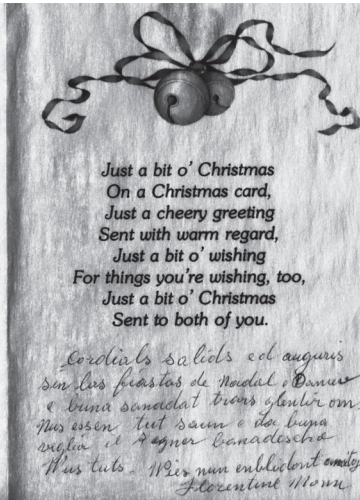 Just a bit o' Christmas
On a Christmas card,
Just a cheery greeting
Sent with warm regard,
Just a bit o' wishing
For things you're wishing, too,
Just a bit o' Christmas
Sent to both of you.
Cordials salids ed auguris
sin las fiastas de Nadal e
e buna sanadat trars glentir om
Nus essen tut saun e da buna
veglia il Segner banadescha
Wus tuts. Wies nun emblidont
Florentine Monn